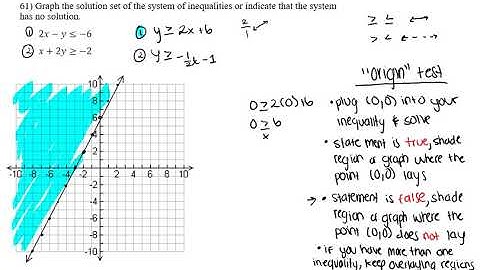 61) Graph the solution set of the system of inequalities or indicate that the system
has no solution.
① 2x − y ≤ −6
② x + 2y ≥ −2
① y ≥ 2x+6
② y ≥ -1/2x - 1
2/1 ↙↗
≥ ≤ ←→
> < ←--→
"origin" test
0 ≥ 2(0)+6
0 ≥ 6
x
• plug (0,0) into your
inequality & solve
• statement is true, shade
region of graph where the
point (0,0) lays
→ • statement is false, shade
region of graph where the
point (0,0) does not lay
• if you have more than one
inequality, keep overlaying regions
10
8
6
4
2
-10 -8 -6 -4 -2 2 4 6 8 10
-2
-4
-6
-8
-10